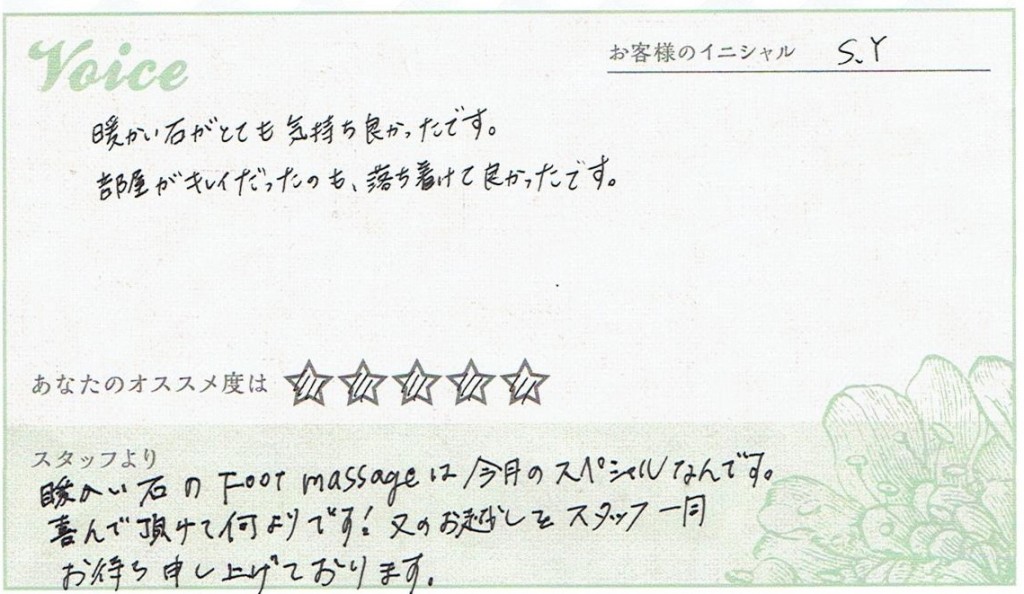 Voice
お客様のイニシャル S.Y
暖かい石がとても気持ち良かったです。
部屋がキレイだったのも、落ち着けて良かったです。
あなたのオススメ度は ☆☆☆☆☆
スタッフより
暖かい石の Foot massageは今月のスペシャルなんです。
喜んで頂けて何よりです! 又のお越しをスタッフ一同
お待ち申し上げております.